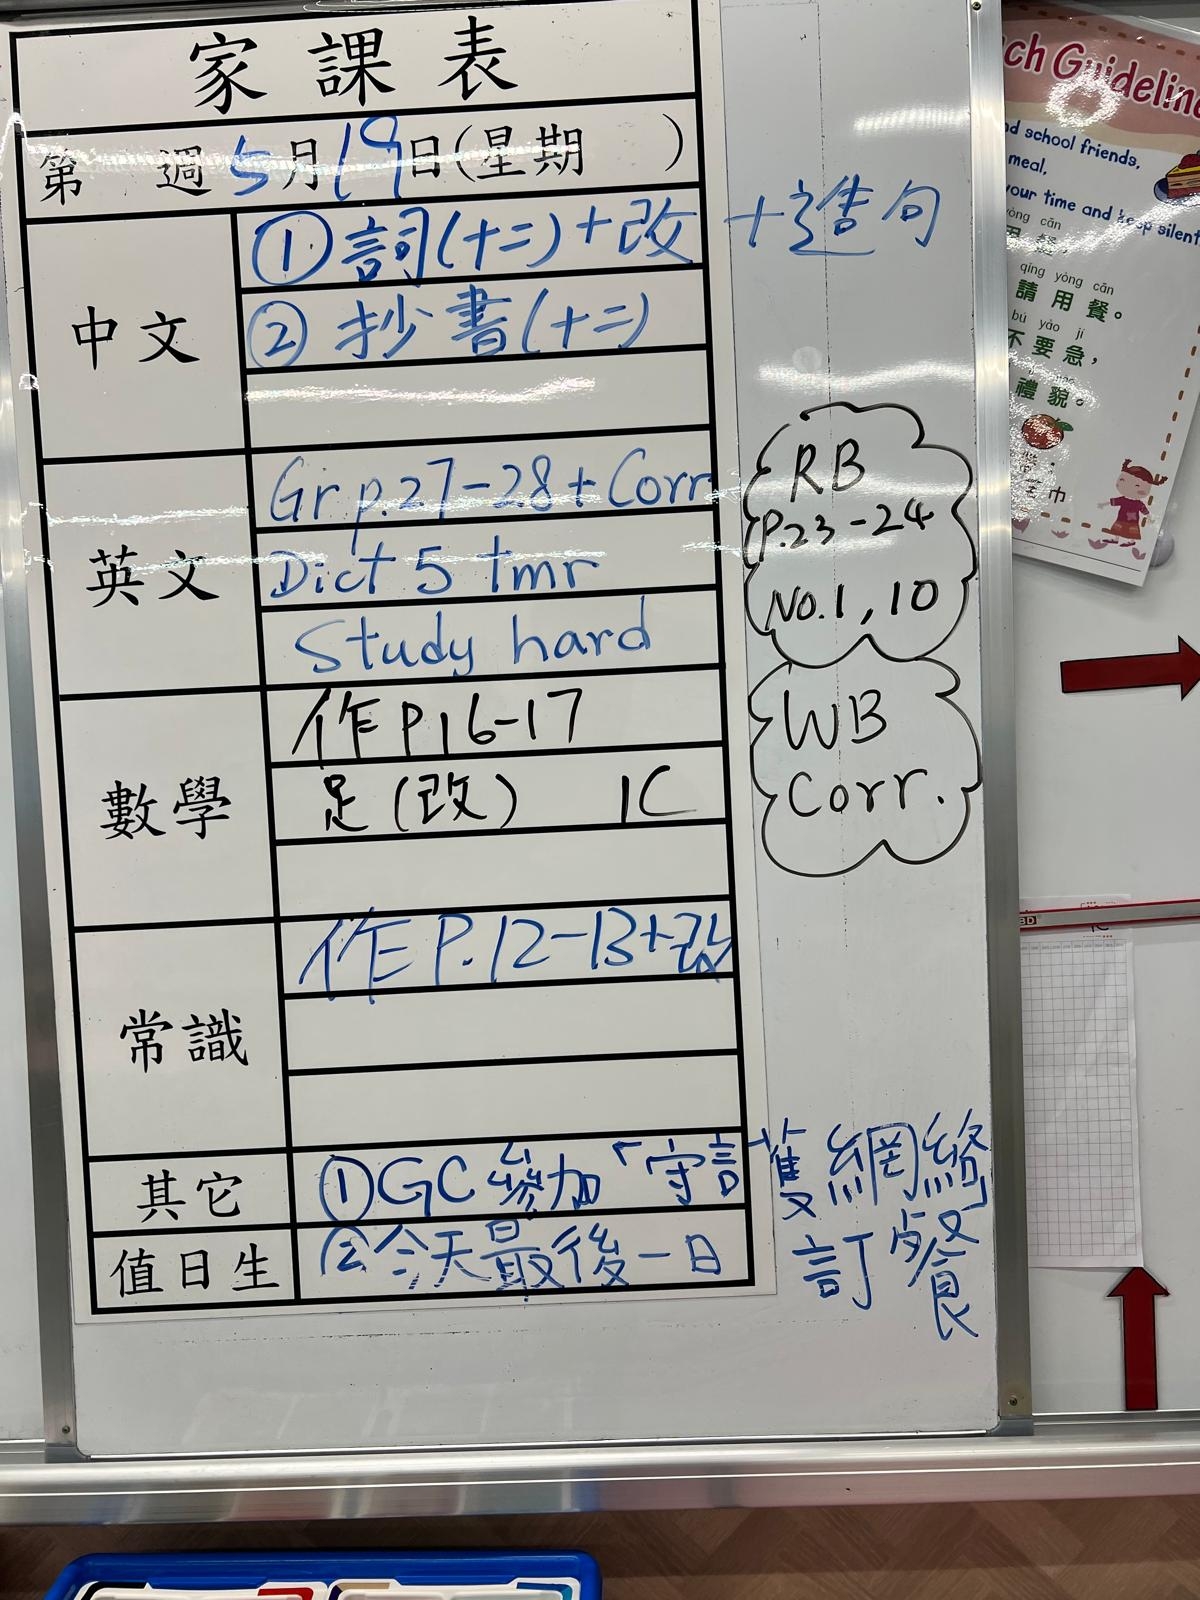 家課表
第 週5月19日(星期 )
中文
①詞(十二)+改 +造句
②抄書(十二)
英文
Gr p.27-28 + Corr
Dict 5 tmr
Study hard
RB
P.23-24
No.1, 10
WB
Corr.
數學
作P16-17
足(改) 1C
常識
作P.12-13+改
其它
①GC參加「守護網絡
值日生
②今天最後一日
訂餐
ch Guidelin
nd school friends,
meal,
your time and keep silent
yòng cān
用餐,
qǐng yòng cān
請用餐。
bú yào jí
不要急,
禮貌。
巾
BD
1C